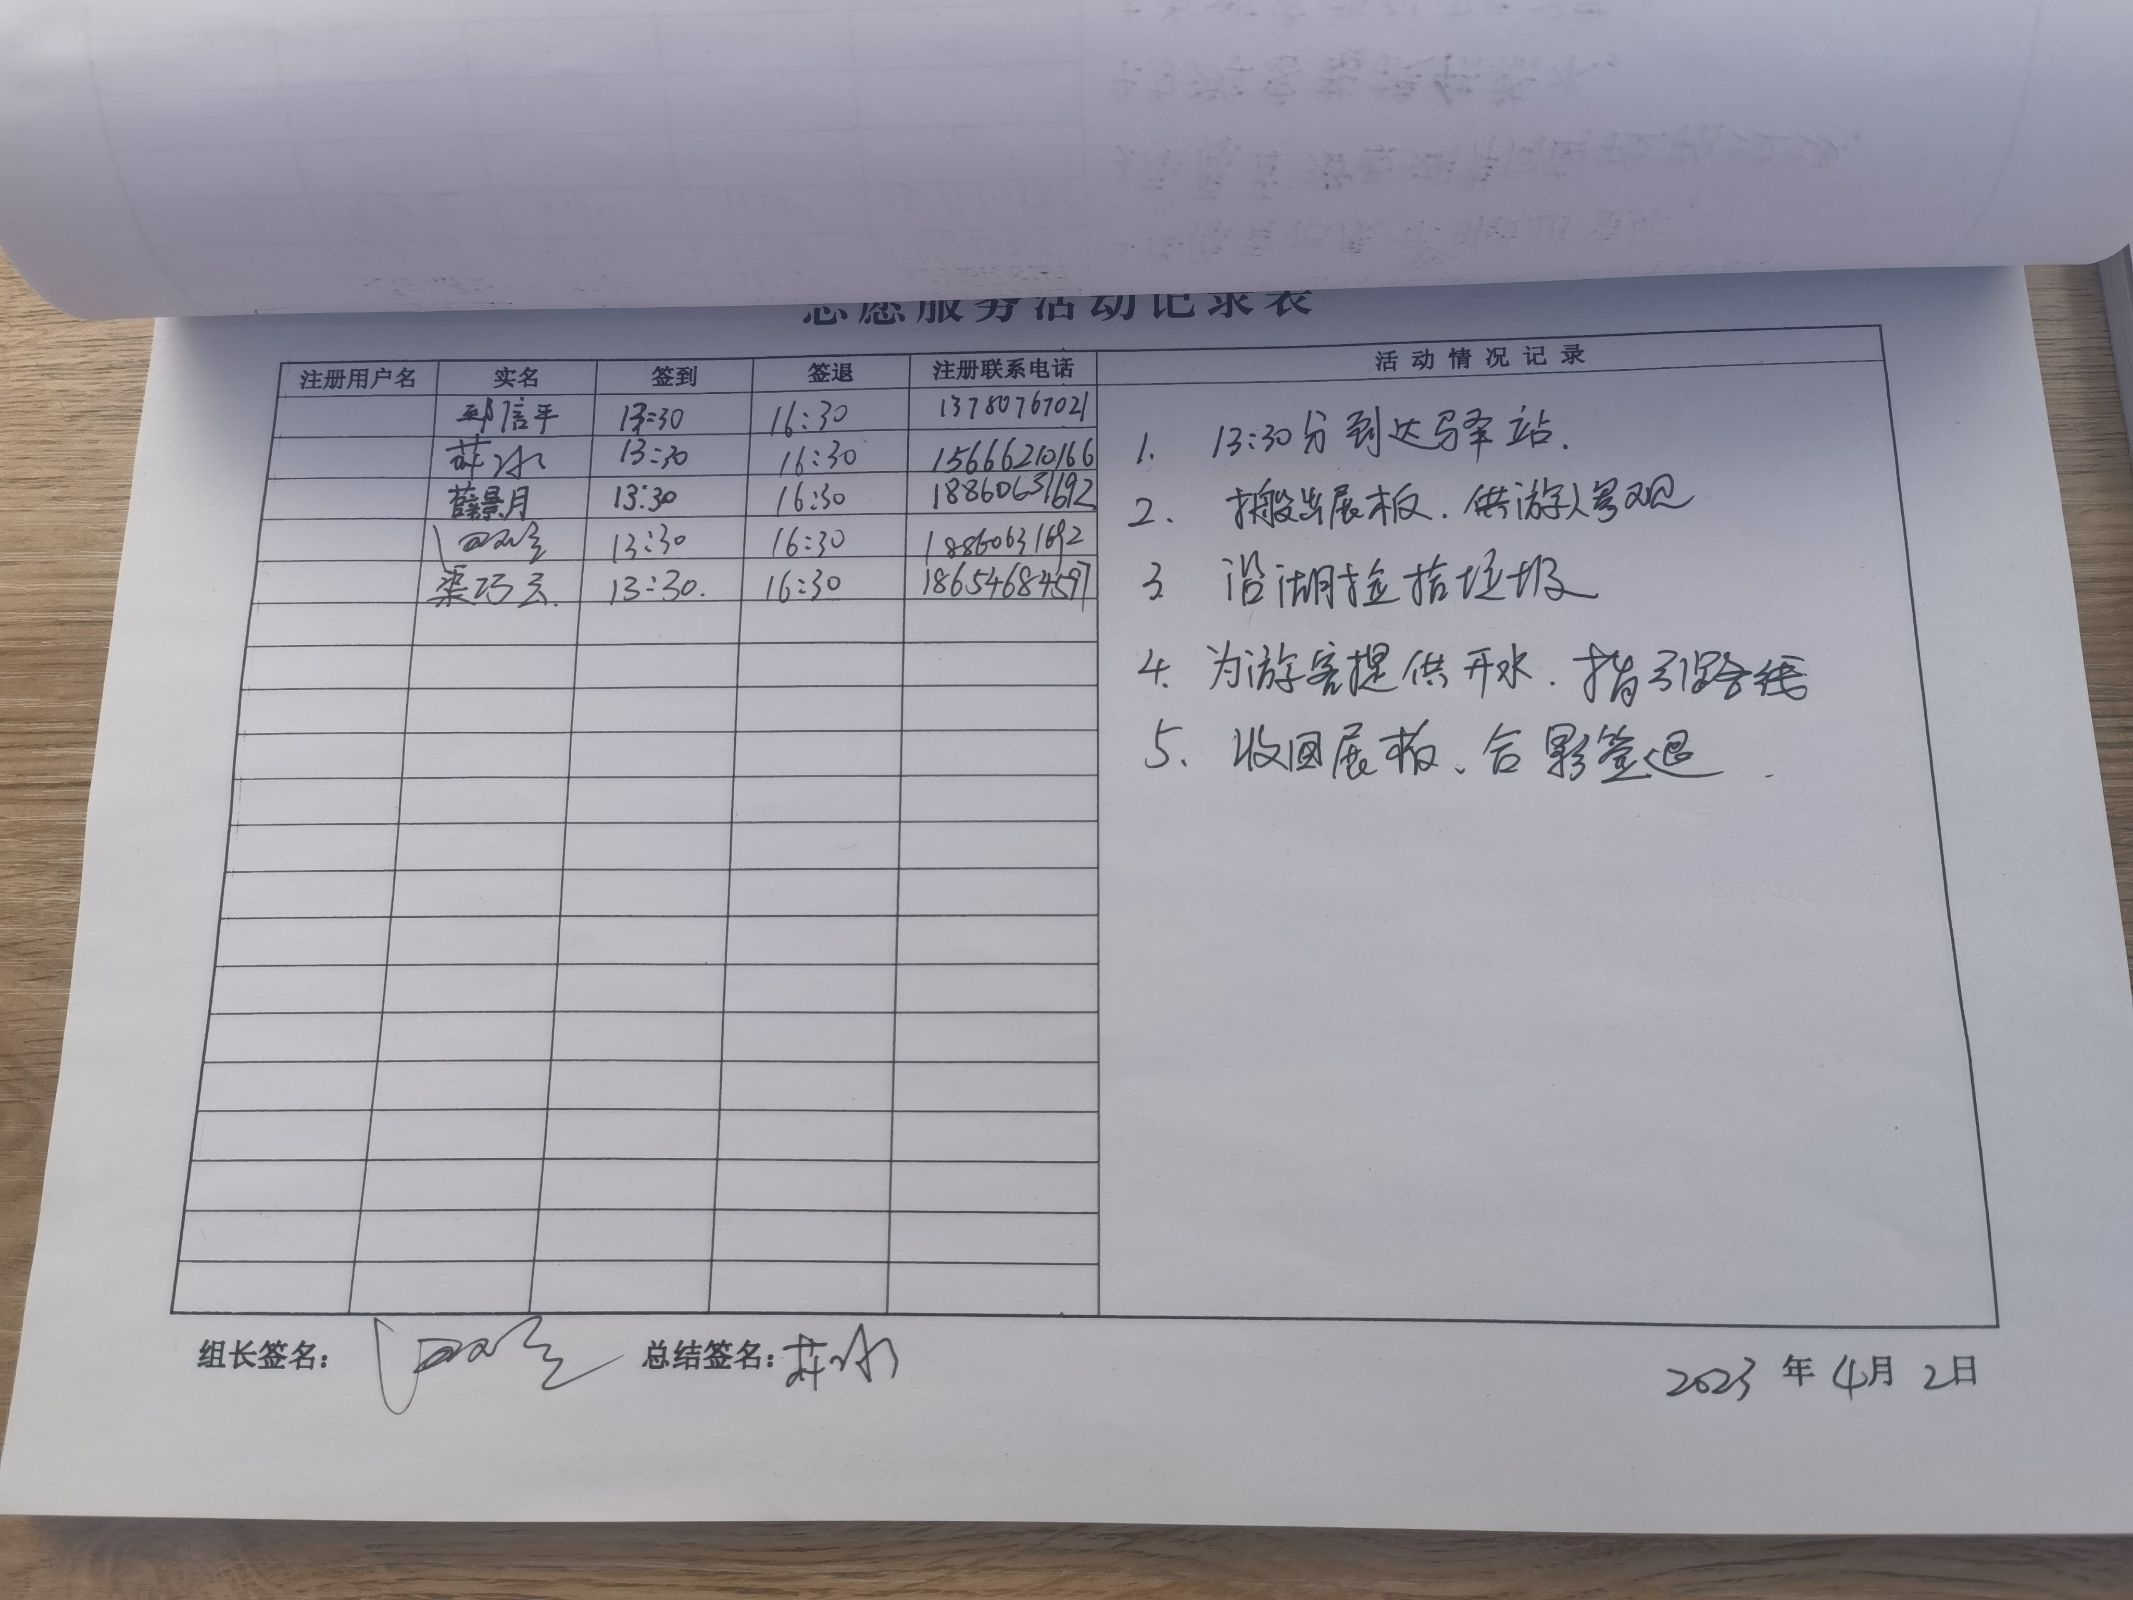 志愿服务活动记录表
注册用户名 实名 签到 签退 注册联系电话 活动情况记录
邹信平 13:30 16:30 13780767021
薛冰 13:30 16:30 15666210166
薛景月 13:30 16:30 18860631692
13:30 16:30 18860631692
栾巧云. 13:30. 16:30 18654684597
1. 13:30分到达驿站.
2. 搬出展板.供游人参观
3. 沿湖捡拾垃圾
4. 为游客提供开水.指引路线
5. 收回展板、合影签退.
组长签名: 总结签名:薛冰
2023年4月2日